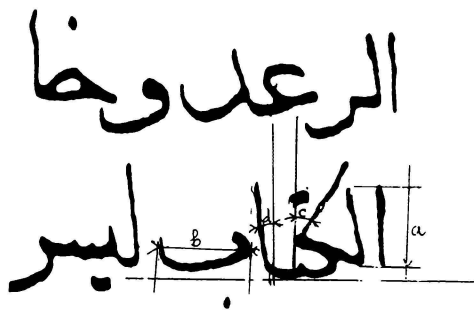 الرعد وخا
الكتاب ليسر
b d c a